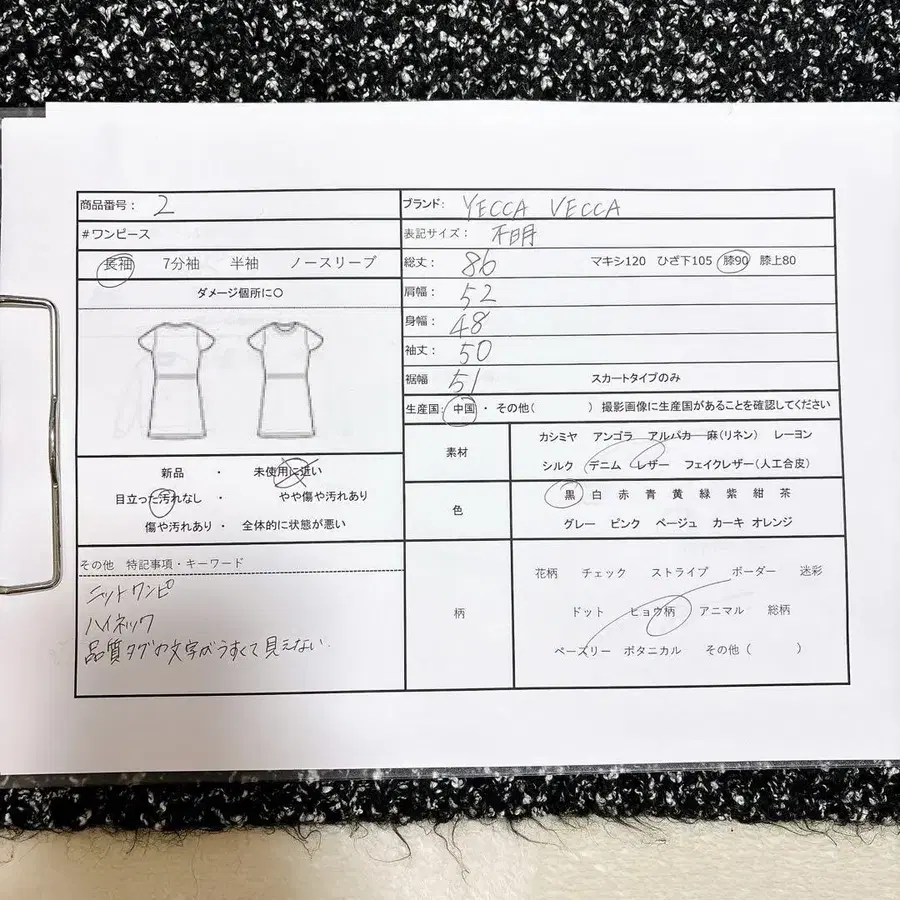 商品番号： 2
#ワンピース
長袖 7分袖 半袖 ノースリーブ
ダメージ個所に○
新品 ・ 未使用に近い
目立った汚れなし ・ やや傷や汚れあり
傷や汚れあり ・ 全体的に状態が悪い
その他 特記事項・キーワード
ニットワンピ
ハイネック
品質タグの文字がうすくて見えない
ブランド： YECCA VECCA
表記サイズ： 不明
総丈： 86 マキシ120 ひざ下105 膝90 膝上80
肩幅： 52
身幅： 48
袖丈： 50
裾幅 51 スカートタイプのみ
生産国： 中国 ・ その他( ) 撮影画像に生産国があることを確認してください
素材
カシミヤ アンゴラ アルパカ 麻(リネン) レーヨン
シルク デニム レザー フェイクレザー(人工合皮)
色
黒 白 赤 青 黄 緑 紫 紺 茶
グレー ピンク ベージュ カーキ オレンジ
柄
花柄 チェック ストライプ ボーダー 迷彩
ドット ヒョウ柄 アニマル 総柄
ペーズリー ボタニカル その他 ( )